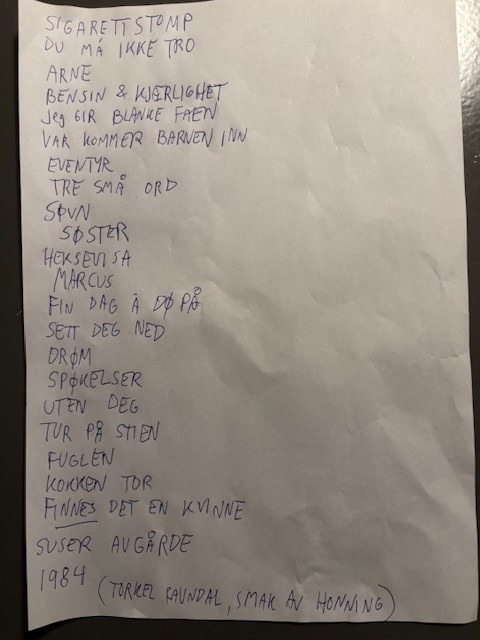 SIGARETTSTOMP
DU MÅ IKKE TRO
ARNE
BENSIN & KJÆRLIGHET
Jeg GIR BLANKE FAEN
VAR KOMMER BARNEN INN
EVENTYR
TRE SMÅ ORD
SØVN
SØSTER
HEKSEVISA
MARCUS
FIN DAG Å DØ PÅ
SETT DEG NED
DRØM
SPØKELSER
UTEN DEG
TUR PÅ STIEN
FUGLEN
KOKKEN TOR
FINNES DET EN KVINNE
SUSER AVGÅRDE
1984 (TORKEL RAUNDAL, SMAK AV HONNING)